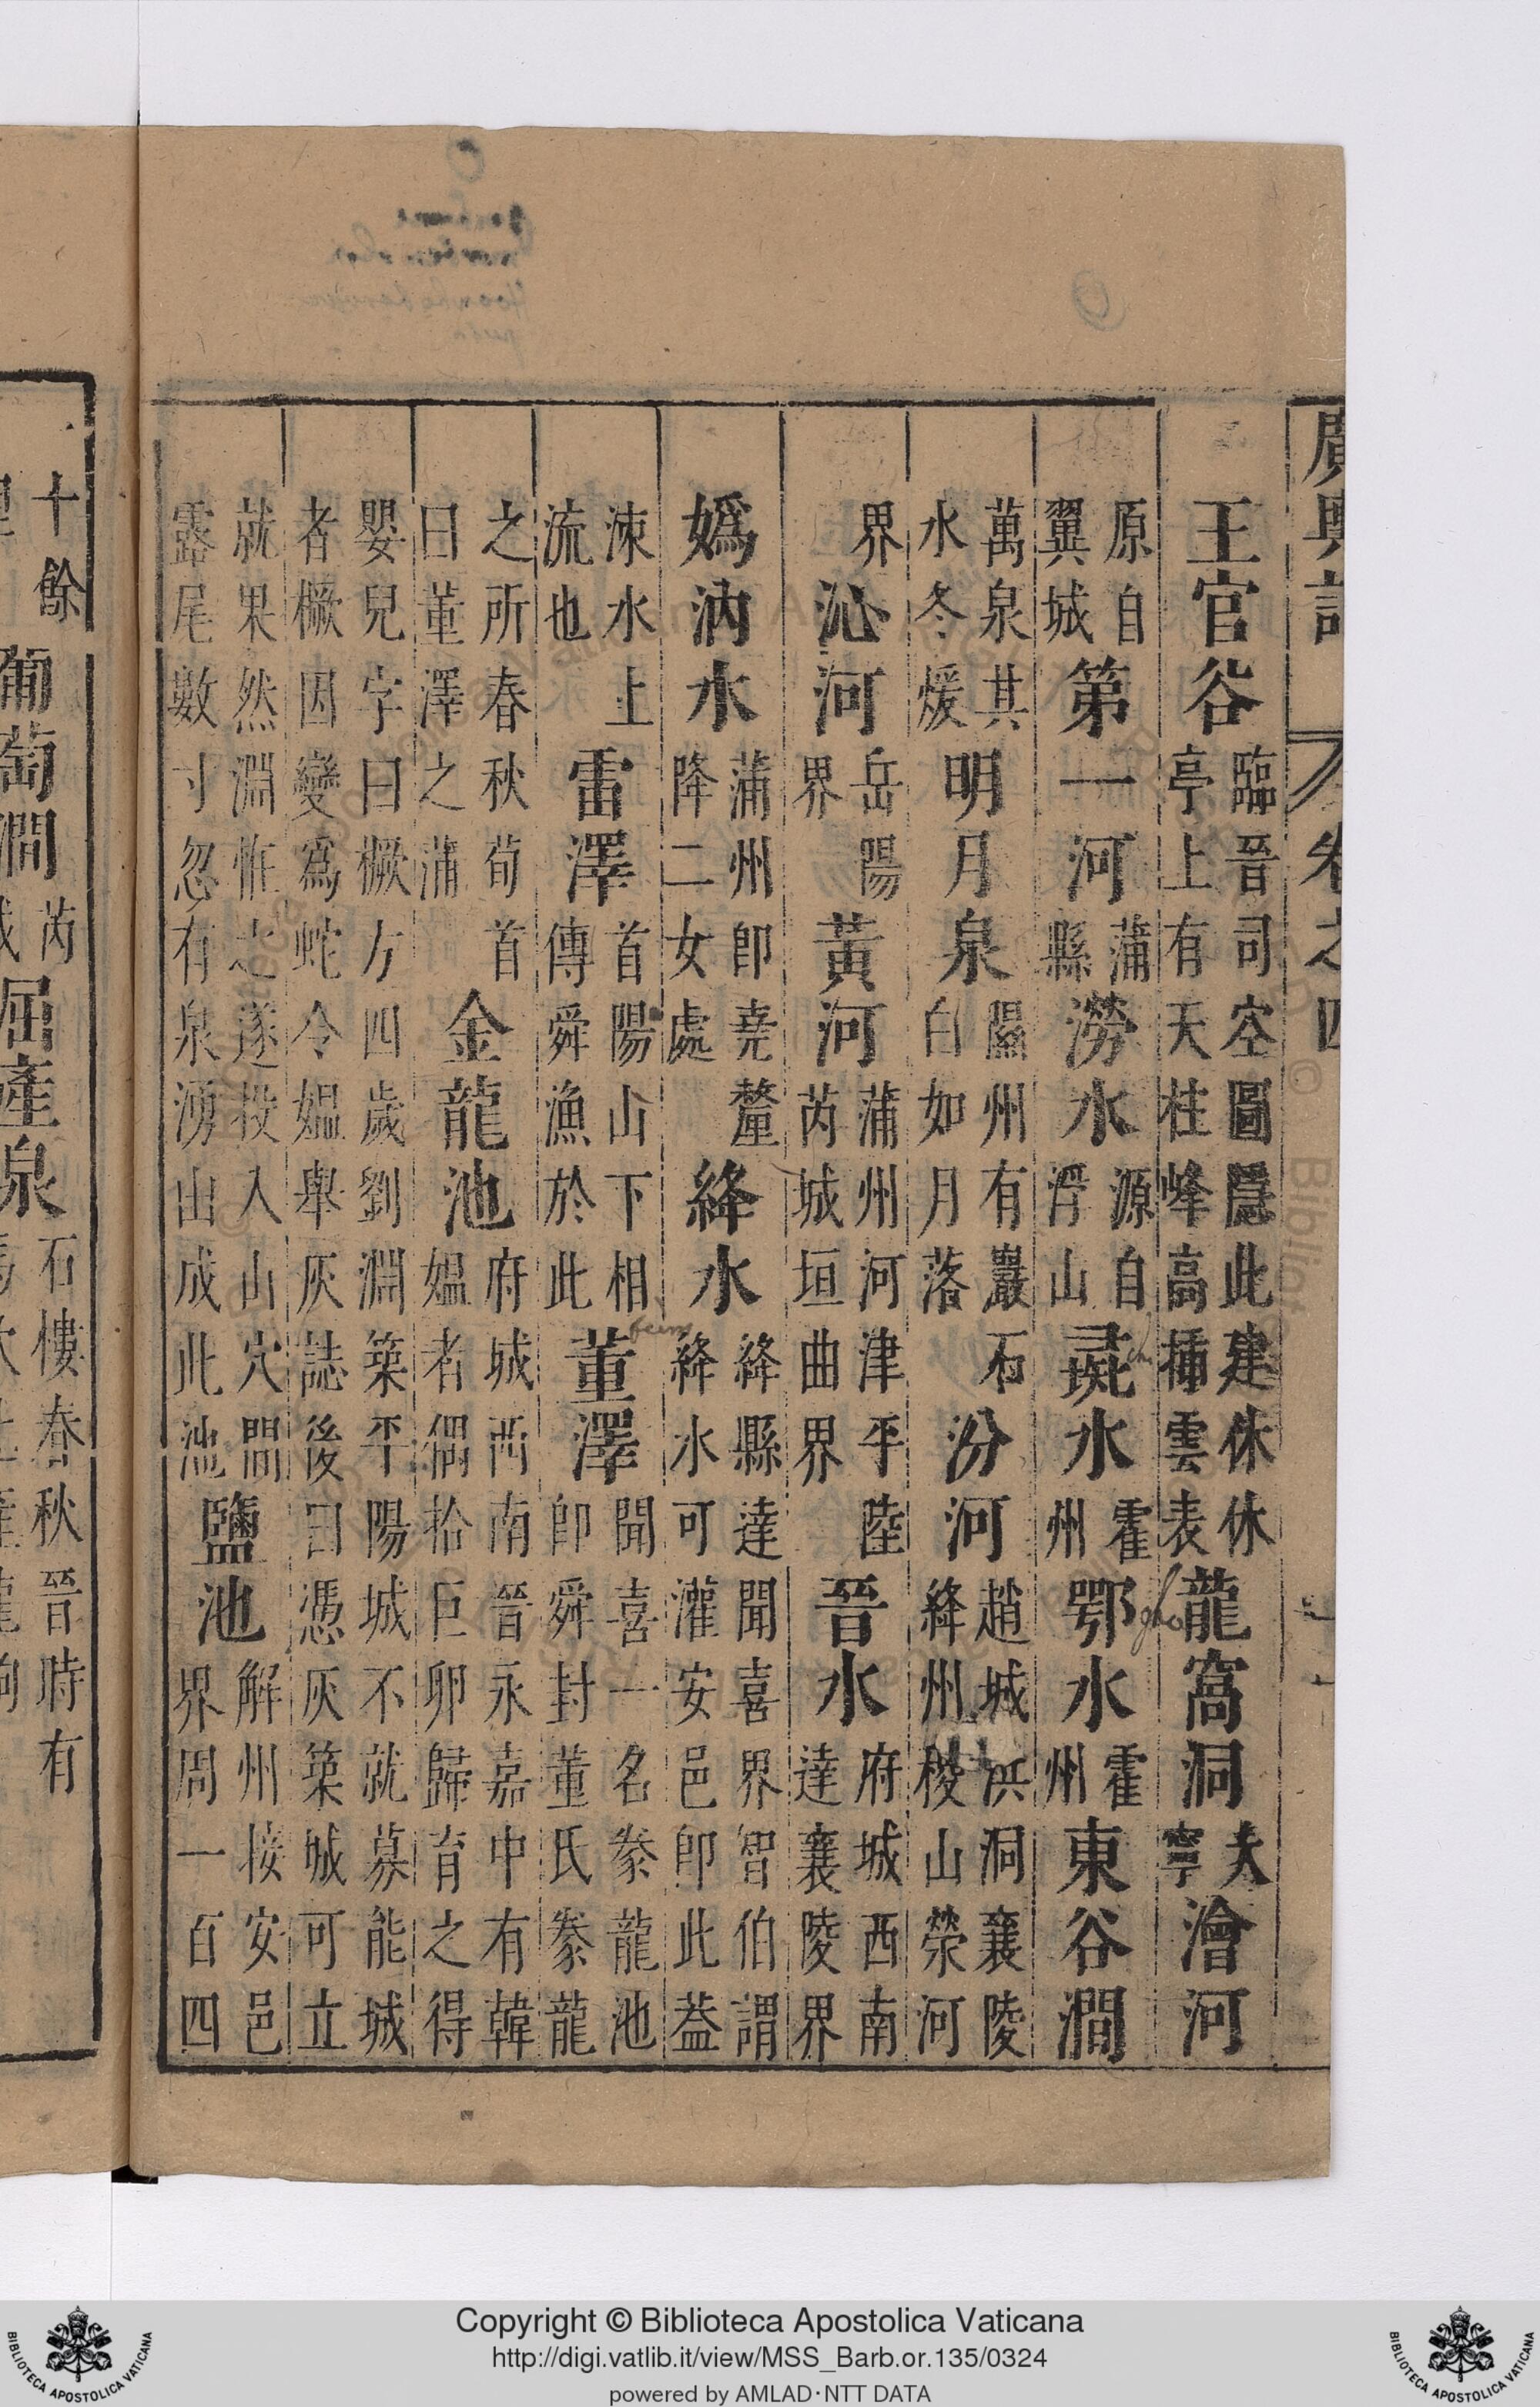 廣輿記 卷之四
王官谷臨晉司空圖隱此建休休亭上有天柱峰高揷雲表龍窩洞大寧澮河
原自翼城第一河蒲縣澇水源自浮山彘水霍州鄂水霍州東谷澗
萬泉其水冬煖明月泉隰州有巖石白如月落汾河趙城洪洞襄陵絳州稷山滎河
界沁河岳陽界黃河蒲州河津平陸芮城垣曲界晉水府城西南達襄陵界
嬀汭水蒲州卽堯釐降二女處絳水絳縣達聞喜界智伯謂絳水可灌安邑卽此葢
涑水上流也雷澤首陽山下相傳舜漁於此董澤聞喜一名豢龍池卽舜封董氏豢龍
之所春秋荀首曰董澤之蒲金龍池府城西南晉永嘉中有韓媪者偶拾巨卵歸育之得
嬰兒字曰橛方四歲劉淵築平陽城不就募能城者橛因變爲蛇令媪舉灰誌後曰憑灰築城可立
就果然淵恠之遂投入山穴間露尾數寸忽有泉湧出成此池鹽池解州接安邑界周一百四
十餘葡萄澗芮屈產泉石樓春秋晉時有
Copyright © Biblioteca Apostolica Vaticana
http://digi.vatlib.it/view/MSS_Barb.or.135/0324
powered by AMLAD·NTT DATA
BIBLIOTECA APOSTOLICA VATICANA
BIBLIOTECA APOSTOLICA VATICANA